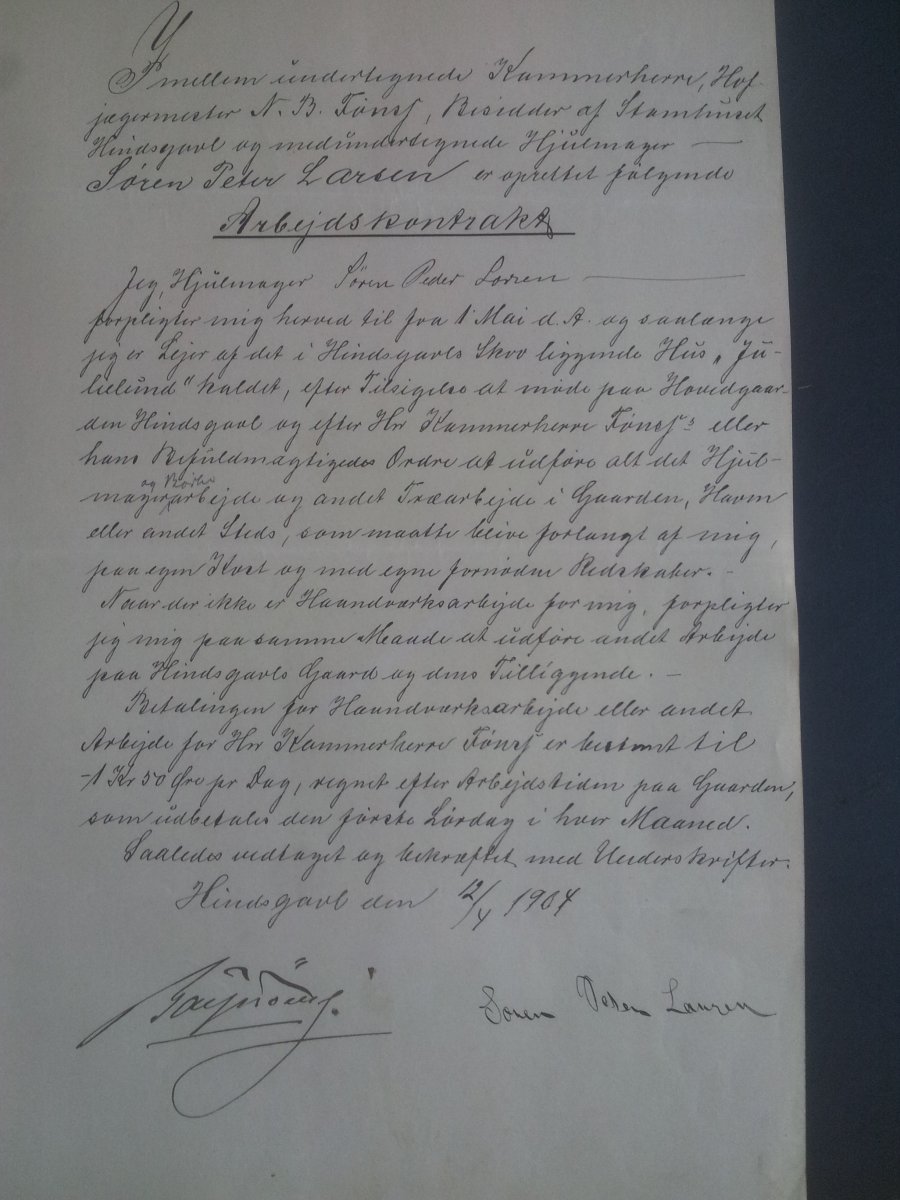 Imellem undertegnede Kammerherre, Hof-
jægermester N. B. Fønss, Besidder af Stamhuset
Hindsgavl og medundertegnede Hjulmager —
Søren Peter Larsen er oprettet følgende
Arbejdskontrakt
Jeg, Hjulmager Søren Peder Larsen —
forpligter mig herved til fra 1 Mai d. A. og saalænge
jeg er Lejer af det i Hindsgavls Skov liggende Hus „Ju-
lielund" kaldet, efter Tilsigelse at møde paa Hovedgaar-
den Hindsgavl og efter Hr Kammerherre Fønss's eller
hans Befuldmægtigedes Ordre at udføre alt det Hjul-
mager og arbejde og andet Træarbejde i Gaarden, Haven
eller andet Steds, som maatte blive forlangt af mig,
paa egen Kost og med egne fornødne Redskaber. —
Naar der ikke er Haandværksarbejde for mig, forpligter
jeg mig paa samme Maade at udføre andet Arbejde
paa Hindsgavls Gaard og dens Tilliggende. —
Betalingen for Haandværksarbejde eller andet
Arbejde for Hr Kammerherre Fønss er bestemt til
1 Kr 50 Øre pr Dag, regnet efter Arbejdstiden paa Gaarden,
som udbetales den første Lørdag i hver Maaned.
Saaledes vedtaget og bekræftet med Underskrifter.
Hindsgavl den 12/4 1904
Søren Peter Larsen